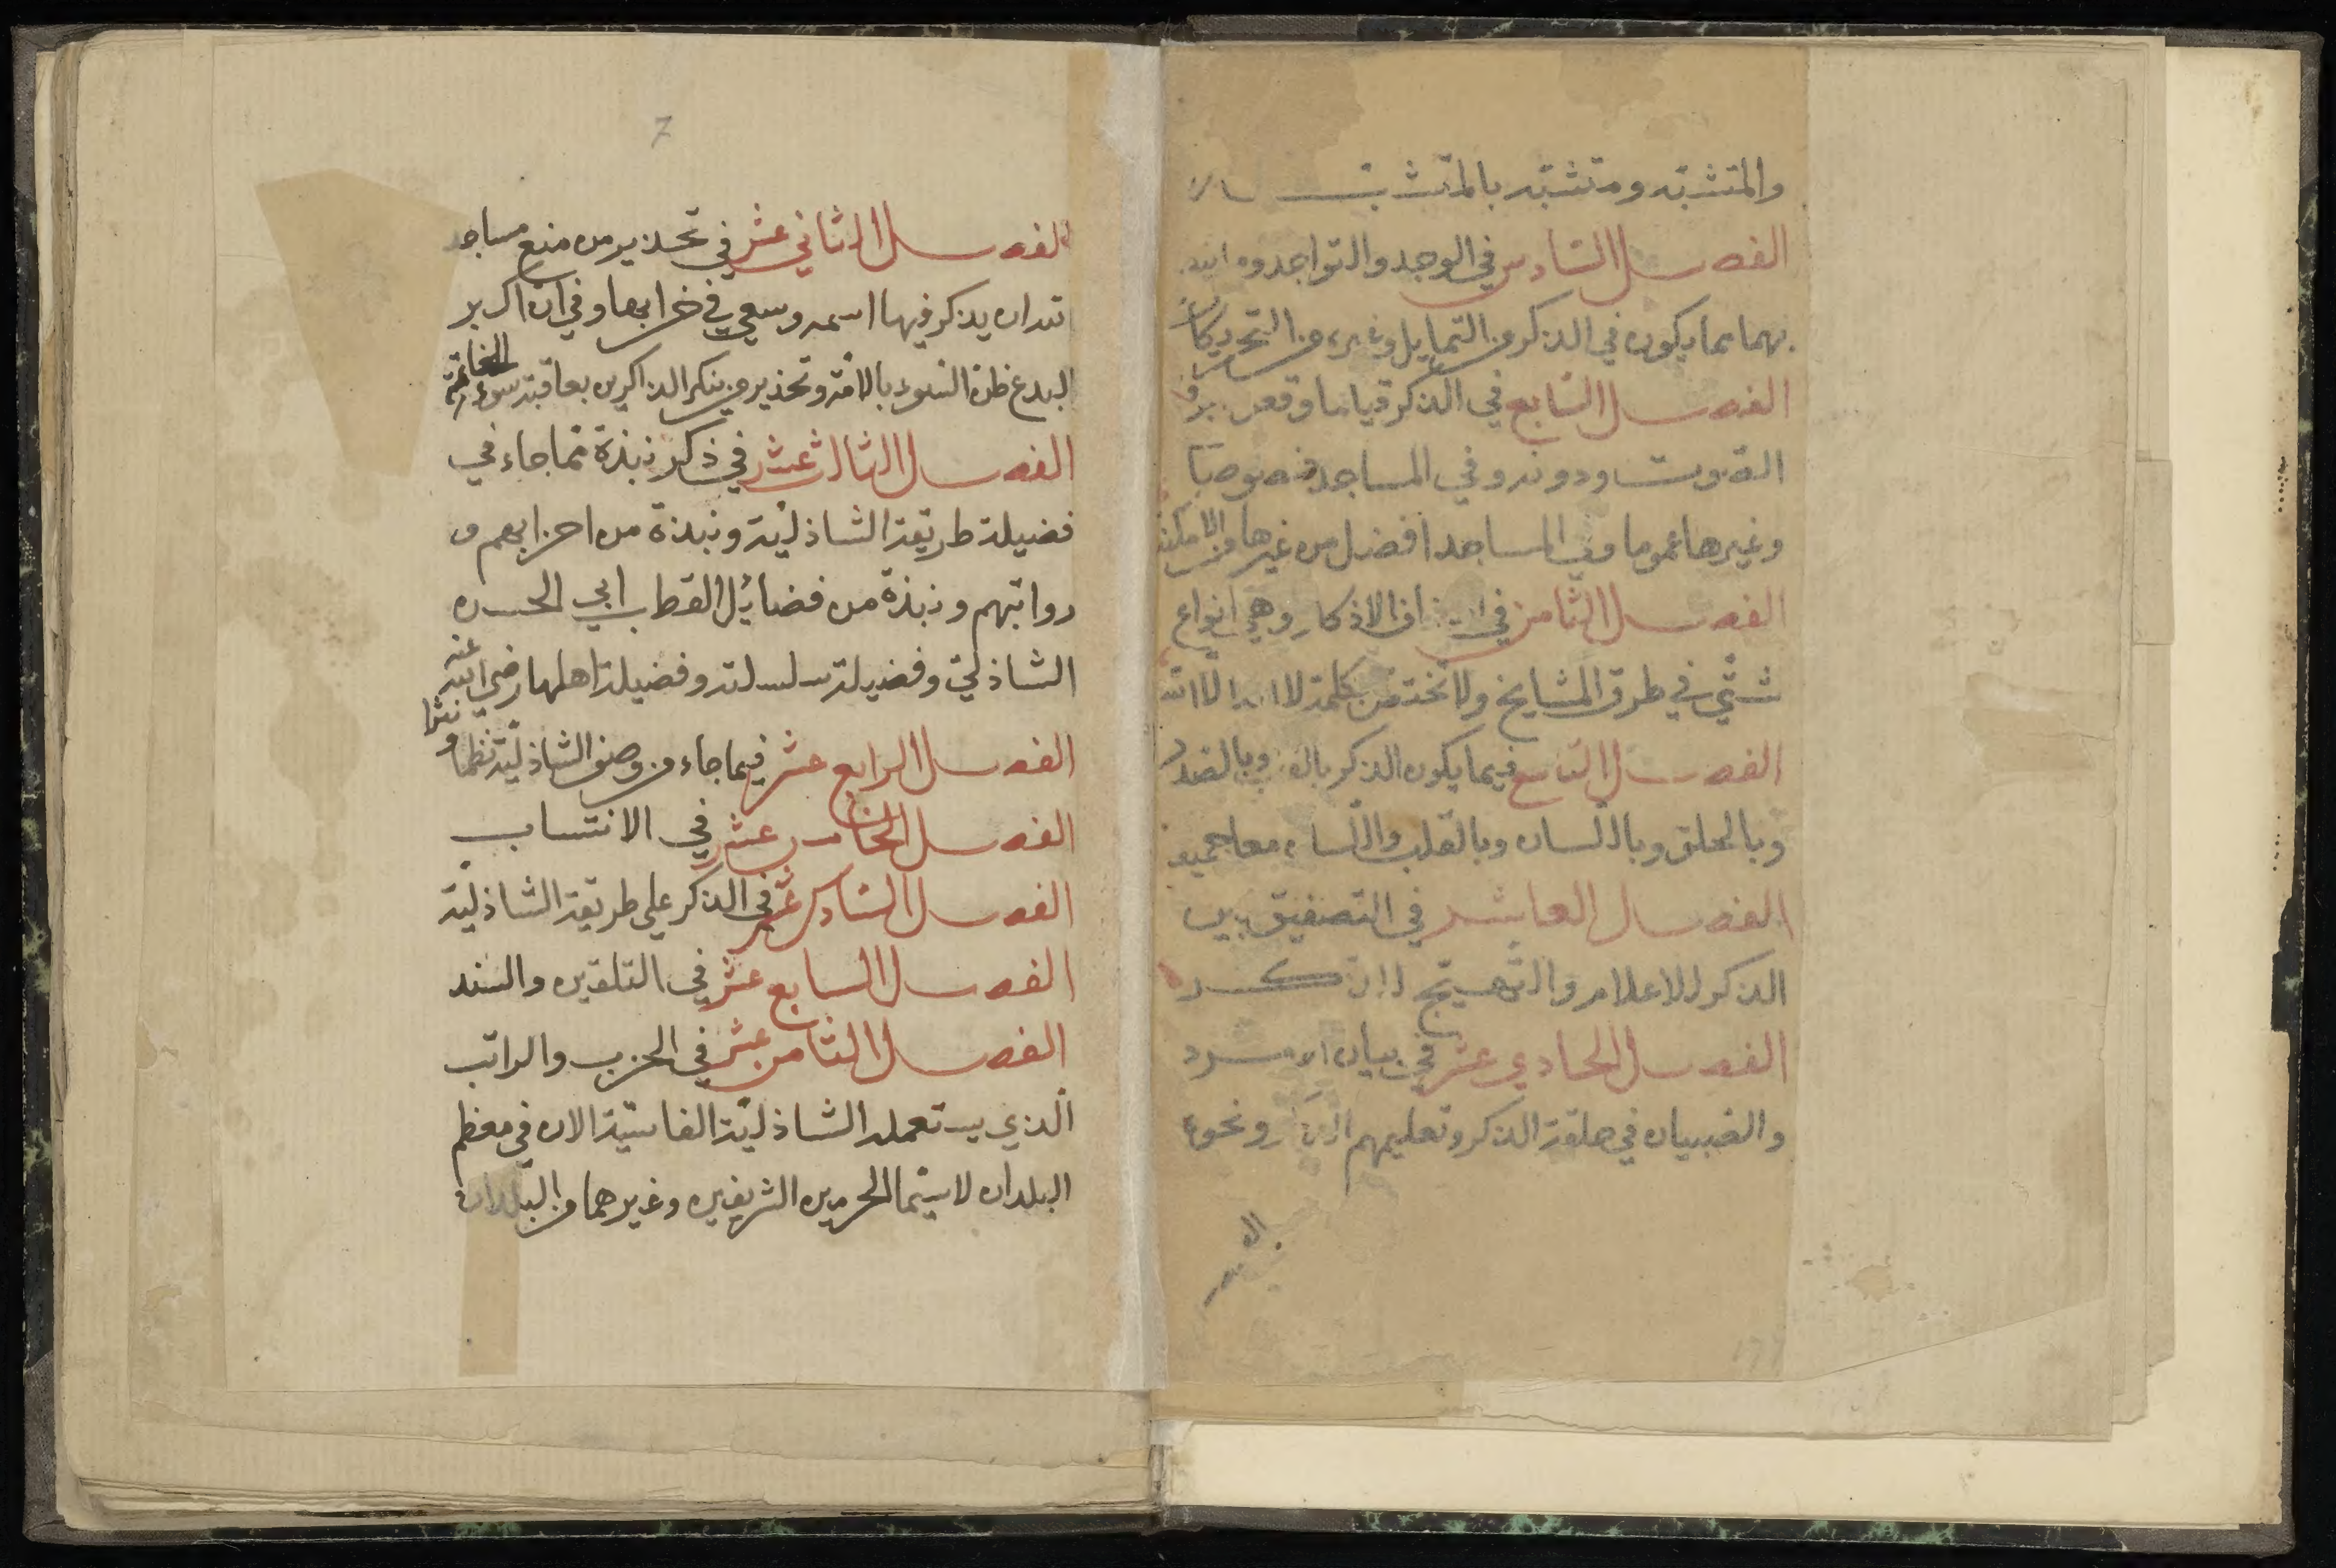 والمتشبّه ومتشبّه بالمتشبّه
الفصل السّادس في الوجد والتواجد وما
بهما مما يكون في الذكر من التمايل وغيره من التحريكات
الفصل السّابع في الذكر قياما وقعو برفع
الصوت ودونه وفي المساجد خصوصًا
وغيرها عموما وفي المساجد افضل من غيرها من الامكنة
الفصل الثامن في الاذكار وهي انواع
شتّى في طرق المشايخ ولا تختص بكلمة لا اله الا الله
الفصل التاسع فيما يكون الذكر وبالصدر
وبالحلق وباللّسان وبالقلب واللّسان معا جميعا
الفصل العاشر في التصفيق بين
الذكر للاعلام والتّهييج
الفصل الحادي عشر في بيان الامرد
والصبيان في حلقة الذكر وتعليمهم ونحوه
7
الفصل الثاني عشر في تحذير من منع مساجد
الله ان يذكر فيها اسمه وسعى في خرابها وفي ان اكبر
البدع ظن السّوء بالامّة وتحذير من ينكر الذاكرين بعاقبة سوء الخاتمة
الفصل الثالث عشر في ذكر نبذة مّما جاء في
فضيلة طريقة الشاذليّة ونبذة من احزابهم و
رواتبهم ونبذة من فضائل القطب ابي الحسن
الشاذلّي وفضيلة سلسلته وفضيلة اهلها رضي الله عنه
الفصل الرابع عشر فيما جاء من وصف الشاذليّة نظما و نثرا
الفصل الخامس عشر في الانتساب
الفصل السّادس عشر في الذكر على طريقة الشاذليّة
الفصل السابع عشر في التلقين والسّند
الفصل الثامن عشر في الحزب والراتب
الّذي يستعمله الشاذليّة الفاسّية الان في معظم
البلدان لا سيّما الحرمين الشريفين وغيرهما من البلدان